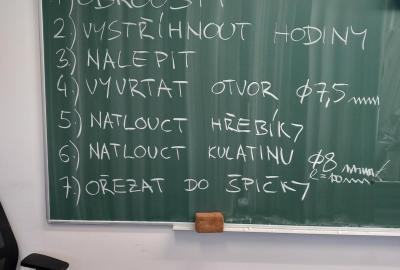 1.) OBROUSIT
2.) VYSTŘIHNOUT HODINY
3.) NALEPIT
4.) VYVRTAT OTVOR φ7,5mm
5.) NATLOUCT HŘEBÍKY
6.) NATLOUCT KULATINU φ8
7.) OŘEZAT DO ŠPIČKY